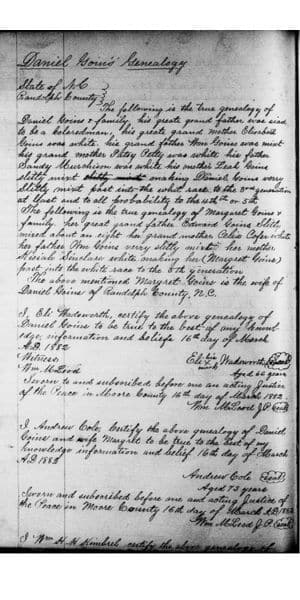 Daniel Goins' Genealogy
State of N.C.
Randolph County
The following is the true genealogy of
Daniel Goins & family, his great grand father was said
to be a coloredman, his great grand mother
Goins was white. his grand father Wm Goins was mixt
his grand mother Patsy Petty was white, his father
Sandy Murchison was white his mother Leah Goins
slitly mixt making Daniel Goins very
Slitly mixt past into the whit race to the 3rd generation
at least and to all probability to the 4th or 5th
The following is the true genealogy of Margaret Goins &
family her great grand father Edward Goins Slitly
mixed about an eight her grand mother Celia Cofer white
her father Wm Goins very slitly mixt, her mother
Kesiah Sinclare white making her (Margret Goins)
past into the white race to the 5th generation
The above mentioned Margret Goins is the wife of
Daniel Goins of Randolph County, N.C.
I, Eli Wadsworth, certify the above genealogy of
Daniel Goins to be true to the best of my knowl
edge, information and beliefs 16th day of March
A.D. 1882
Witness Eli his X mark Wadsworth (Seal)
Wm McLeod Aged 66 years
Sworn to and subscribed before me an acting Justice
of the Peace in Moore County 16th day of March 1882
Wm McLeod J.P. (Seal)
I Andrew Cole, certify the above genealogy of Daniel
Goins and wife Margret to be true to the best of my
knowledge information and belief 16th day of March
A.D. 1882
Andrew Cole (Seal)
Aged 73 years
Sworn and subscribed before me and acting Justice of
the Peace in Moore County 16th day of March A.D. 1882
Wm McLeod J.P. (Seal)
I Wm H. H. Kimbrel certify the above genealogy of